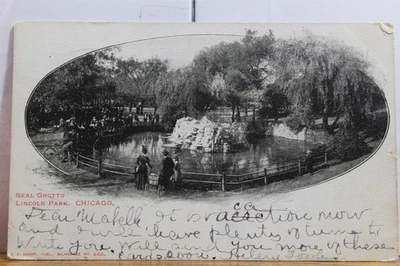 SEAL GROTTO
LINCOLN PARK. CHICAGO.
ca
Dear Mabell It is vacation now
and I will have plenty of time to
write you. Will send you more of these
cards soon. Helene